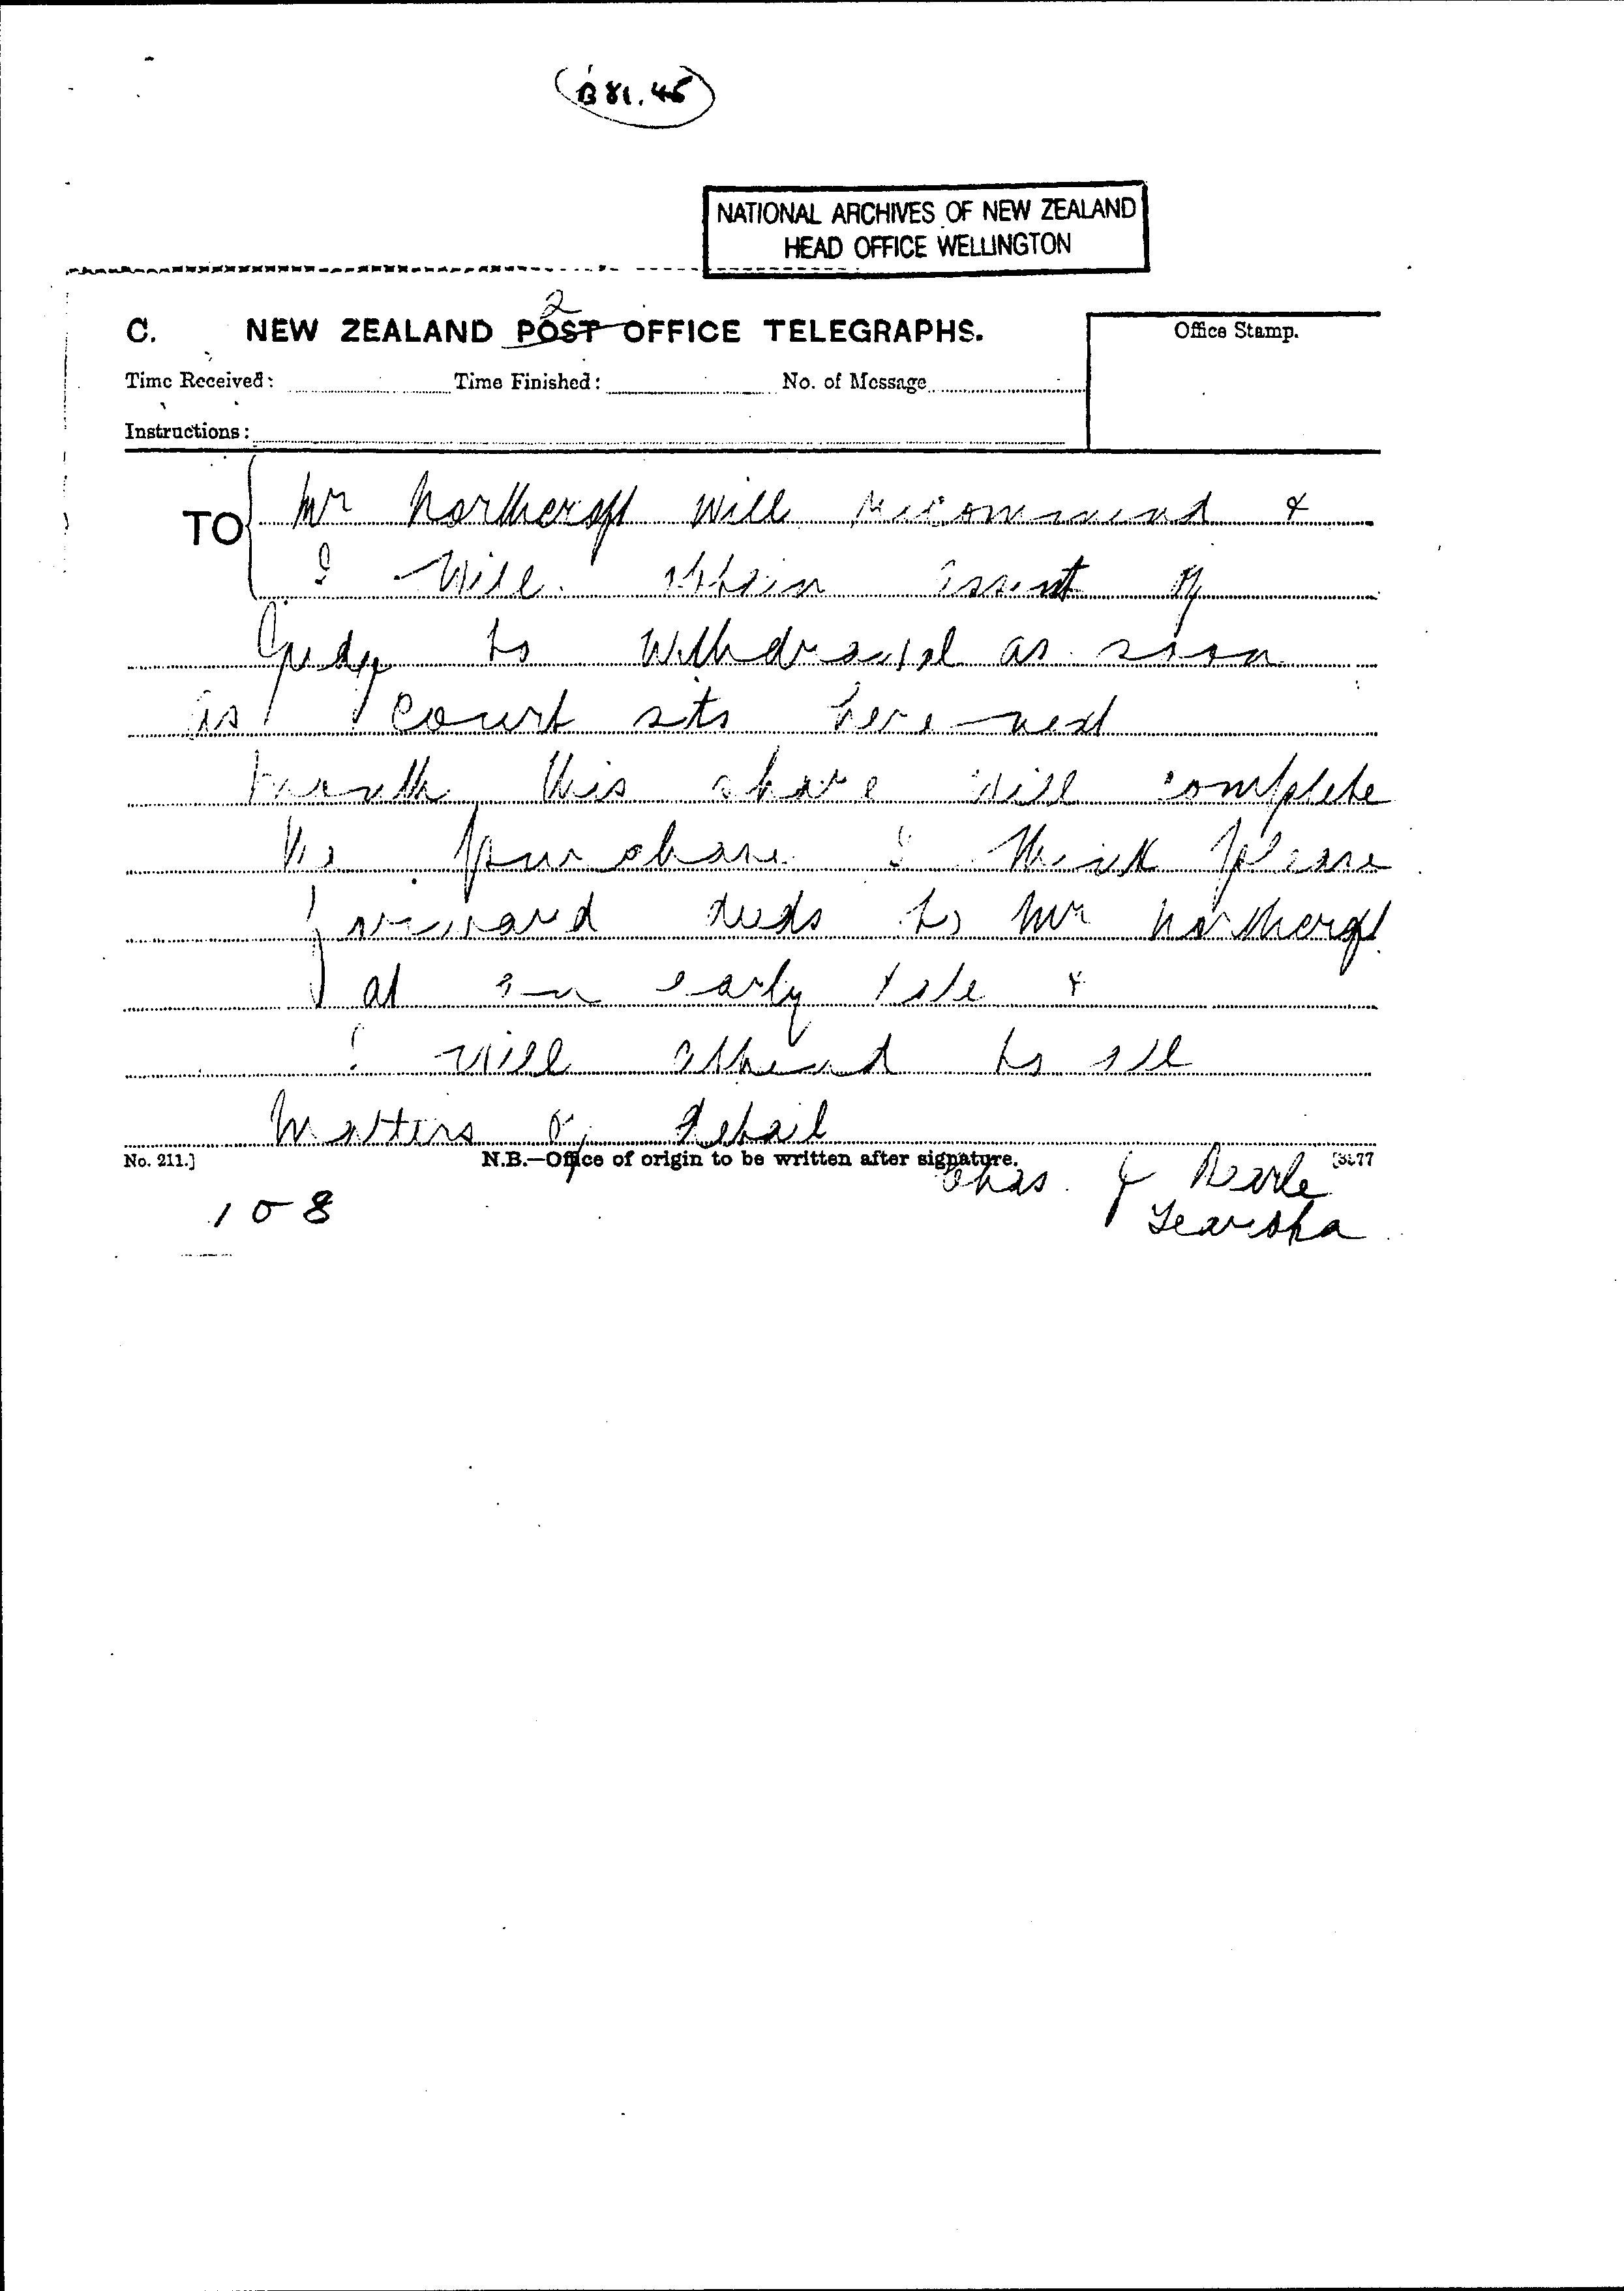 B 81.45
NATIONAL ARCHIVES OF NEW ZEALAND
HEAD OFFICE WELLINGTON
2
C. NEW ZEALAND POST OFFICE TELEGRAPHS.
Office Stamp.
Time Received: Time Finished: No. of Message
Instructions:
TO Mr Northcroft will recommend &
I will obtain assent of
Judge to withdrawal as soon
as court sits here next
month this share will complete
the purchase I think please
forward deeds to Mr Northcroft
at an early date &
I will attend to all
matters of detail
No. 211.] N.B.—Office of origin to be written after signature. [3477
Chas. J Dearle
Tearoha
108